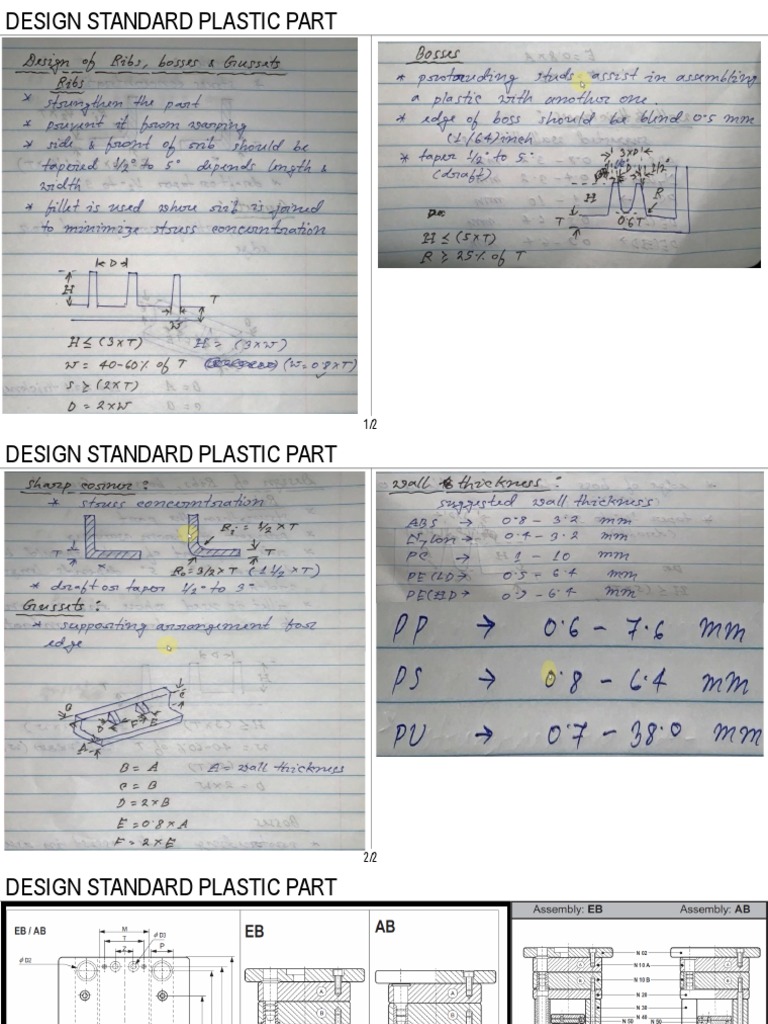 DESIGN STANDARD PLASTIC PART
Design of Ribs, bosses & Gussets
Ribs
* strengthen the part
* prevent it from warping
* side & front of rib should be
tapered 1/2° to 5° depends length &
width
* fillet is used where rib is joined
to minimize stress concerntration
D
H
T
W
H ≤ (3×T)
H ≥ (3×W)
W = 40-60% of T
(W=0.8×T)
S ≥ (2×T)
D = 2×W
Bosses
* protouding studs assist in assembling
a plastic with another one.
* edge of boss should be blind 0.5 mm
(1/64) inch
* taper 1/2° to 5°
(draft)
3×D
1/2°
H
R
T
0.6T
H ≤ (5×T)
R ≥ 25% of T
1/2
DESIGN STANDARD PLASTIC PART
Sharp corner :
* stress concerntration
T
Ri = 1/2 × T
T
Ro = 3/2 × T (1 1/2 × T)
* draft or taper 1/2° to 3°
Gussets :
* supporting arrangement for
edge
C
D
F
E
A
B = A
A = wall thickness
C = B
D = 2×B
E = 0.8×A
F = 2×E
wall thickness :
suggested wall thickness
ABS → 0.8 - 3.2 mm
Nylon → 0.4 - 3.2 mm
PC → 1 - 10 mm
PE(LD → 0.5 - 6.4 mm
PE(HD → - 6.4 mm
PP → 0.6 - 7.6 mm
PS → 0.8 - 6.4 mm
PU → 0.7 - 38.0 mm
2/2
DESIGN STANDARD PLASTIC PART
EB / AB
M
T
Z
Ø D3
P
Ø D2
EB
A
B
AB
A
B
Assembly: EB
Assembly: AB
N 02
N 10 A
N 10 B
N 28
N 38
N 49
N 50
N 50